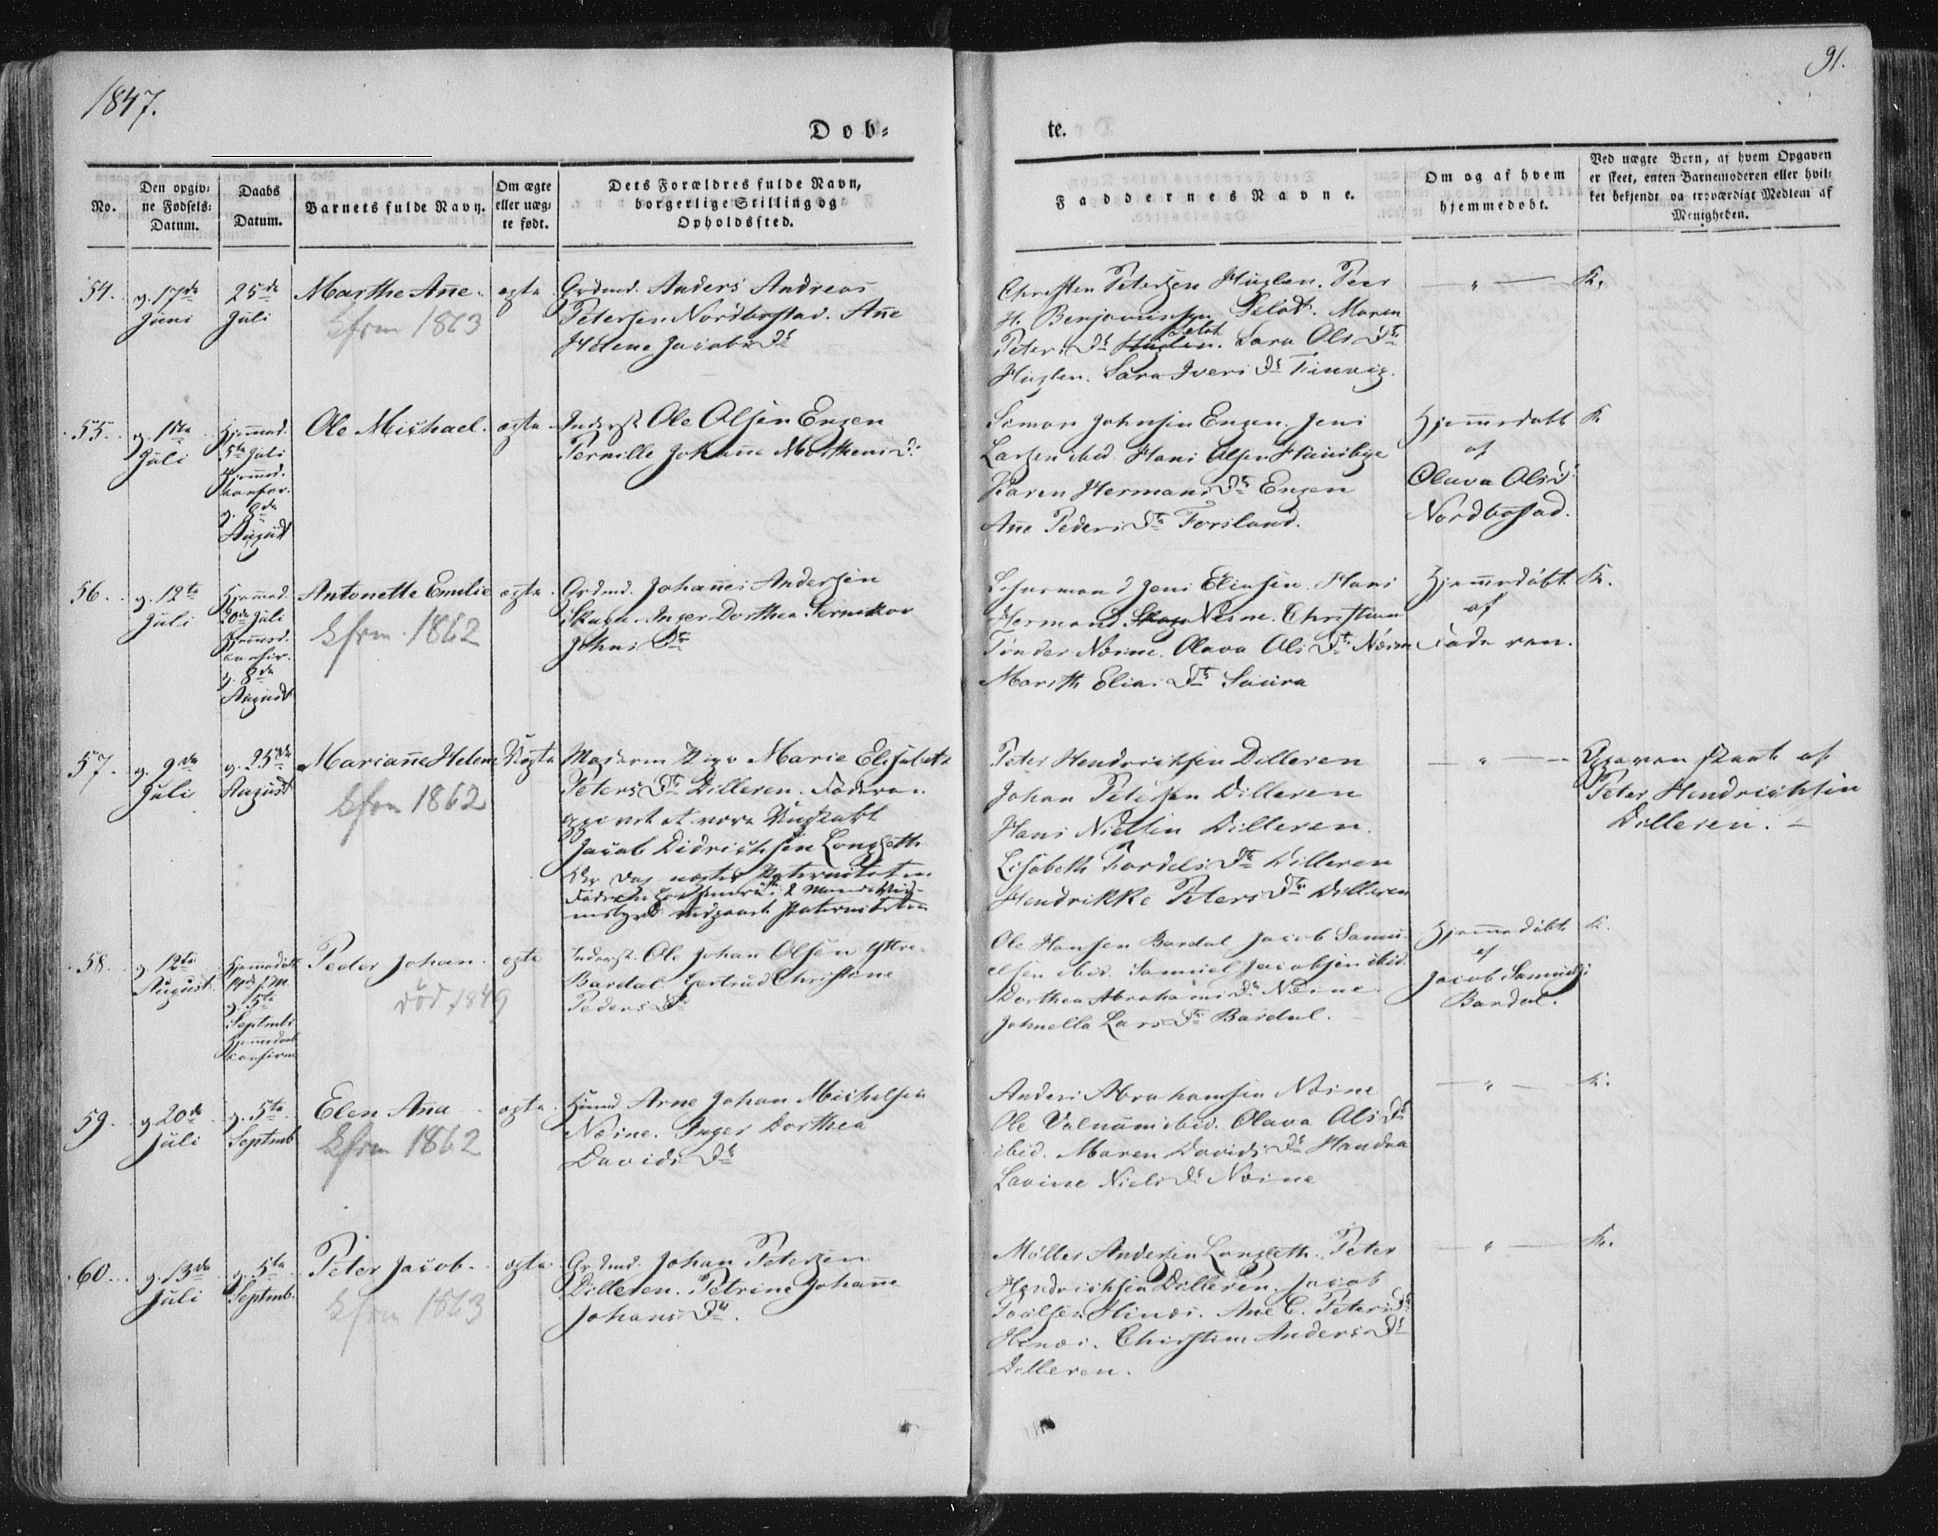 1847.
91.
Dob=
te.
No.
Den opgiv=
ne Fødsels=
Datum.
Daabs
Datum.
Barnets fulde Navn.
Om ægte
eller uæg=
te født.
Dets Forældres fulde Navn,
borgerlige Stilling og
Opholdssted.
Faddernes Navne.
Om og af hvem
hjemmedøbt.
Ved uægte Børn, af hvem Opgaven
er skeet, enten Barnemoderen eller hvil=
ket bekjendt og troværdigt Medlem af
Menigheden.
54.
17de
Juni
25de
Juli
Marthe Ane
Kfrm 1863
ægte
Grdmd. Anders Andreas
Petersen Nordbostad. Ane
Helene Jacobs Dr
Christen Petersen Huglen. Peer
H. Benjaminsen Selöt. Maren
Peters Dr Huglen. Selöt Sara Ols Dr
Huglen. Sara Ivers Dr Finvig.
K.
55.
11te
Juli
Hjemmed.
5te Juli
Hjemmed.
confir.
8de
August
Ole Michael.
ægte
Inderst Ole Olsen Engen
Pernille Johane Mathens Dr
Simon Johnsen Engen. Jens
Larsen ibid. Hans Olsen Huusbye
Karen Hermans Dr Engen
Ane Peders Dr Forsland.
Hjemmedøbt
af
Olava Ols Dr
Nordbostad.
K.
56.
12te
Juli
Hjemmed.
20de Juli
Hjemmed.
confir.
8de
August
Antonette Emilie
Kfrm. 1862
ægte
Grdmd. Johanes Andersen
Skaga Inger Dorthea
Johns Dr
Lehnsmand Jens Eliasen. Hans
Hermand Skaga Nesne. Christian
Tönder Nesne. Olava Ols Dr Nesne
Marith Elias Dr Saura
Hjemmedøbt
af
Faderen.
K.
57.
9de
Juli
25de
August
Mariane Helene
Kfrm 1862
Uægte
Moderen Pige Marie Elisabeth
Peters Dr Dilleren. Faderen
opgivet at være Ungkarl
Jacob Didrichsen Langseth
Peter Hendrichsen Dilleren
Johan Petersen Dilleren
Hans Nielsen Dilleren.
Lisabeth Tordels Dr Dilleren
Hendrikke Peters Dr Dilleren
Opgaven skeet af
Peter Hendrichsen
Dilleren.
58.
12te
August
Hjemmedøbt
5te
Septmb:
Hjemmedaab
confirm
Peder Johan.
död 1849
ægte
Inderst. Ole Johan Olsen Ytre
Bardal Gertrud Christiane
Peders Dr
Ole Hansen Bardal Jacob Samu=
elsen ibid. Samuel Jacobsen ibid.
Dorthea Abrahams Dr Nesne.
Johnella Lars Dr Bardal.
Hjemmedøbt
af
Jacob Samuels:
Bardal.
K.
59.
20de
Juli
5te
Septmb
Elen Ana
Kfrm 1862
ægte
Huusmd Arne Johan Michelsen
Nesne. Inger Dorthea
Davids Dr
Anders Abrahamsen Nesne
Ole ibid. Olava Ols Dr
ibid. Maren Davids Dr Handnæs
Lavine Niels Dr Nesne
K.
60.
13de
Juli
5te
Septmb.
Peter Jacob.
Kfrm 1863
ægte
Grdmd. Johan Petersen
Dilleren. Petrine Johane
Johans Dr.
Möller Andersen Langseth. Peter
Hendrichsen Dilleren. Jacob
Poulsen Hinds. Ane C. Peters Dr
Hinds. Christine Anders Dr
Dilleren.
K.